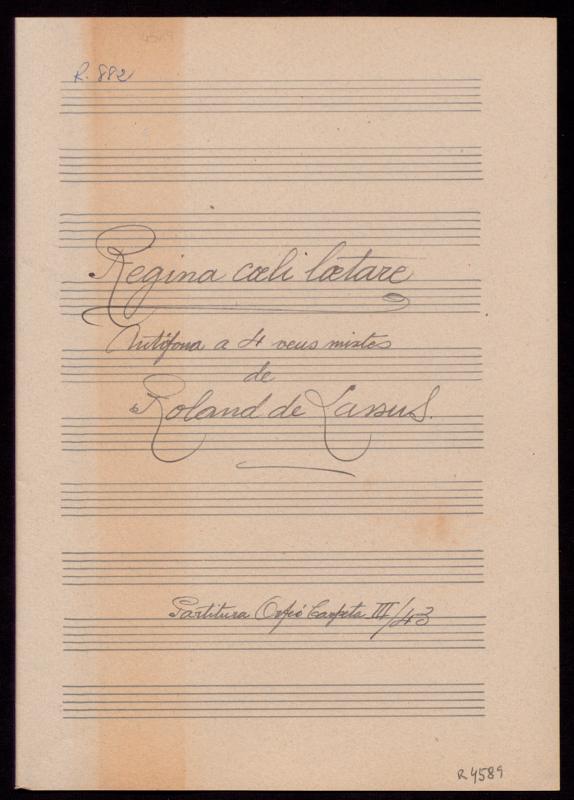 R. 882
Regina cœli lætare
Antífona a 4 veus mixtes
de
Roland de Lassus.
Partitura Orfeó Carpeta III/43
R 4589